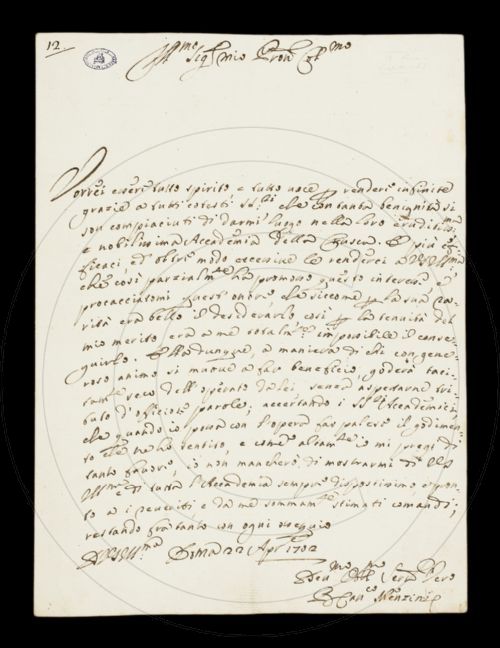 12.
Ill.mo Sig.r mio Pron Col.mo
Vorrei esser tutto spirito e tutto voce per render infinite
grazie a tutti cotesti SS.ri che con tanta benignità si
son compiaciuti di darmi luogo nella loro eruditiss.ma
e nobilissima Accademia della Crusca. E più
efficaci, ed oltre modo eccessive le renderei a VS Ill.ma
che così parzialm.te ha promosso questo interesse, e
procacciatomi quest'onore, che siccome per la sua
rità era bello il desiderarlo, così per la tenuità del
mio merito era a me totalm.te impossibile il conse-
guirlo. Ella dunque, a maniera di chi con gene-
roso animo si muove a far beneficio, goderà taci-
tam.te seco dell'operato da lei senza aspettarne tri-
buto d'officiose parole; accertando i SS.ri Accademici,
che quando io possa con l'opera far palese il godimen-
to che ne ho sentito, e come altam.te io mi pregi di
tanto favore, io non mancherò di mostrarmi di VS
Ill.ma e di tutta l'Accademia sempre dispostissimo
to a i riveriti e da me sommam.te stimati comandi;
restando frattanto con ogni ossequio
D VS Ill.ma Roma 22 Apr.le 1702
Dev.mo Obb.mo Serv. Vero
B Can.co Menzini